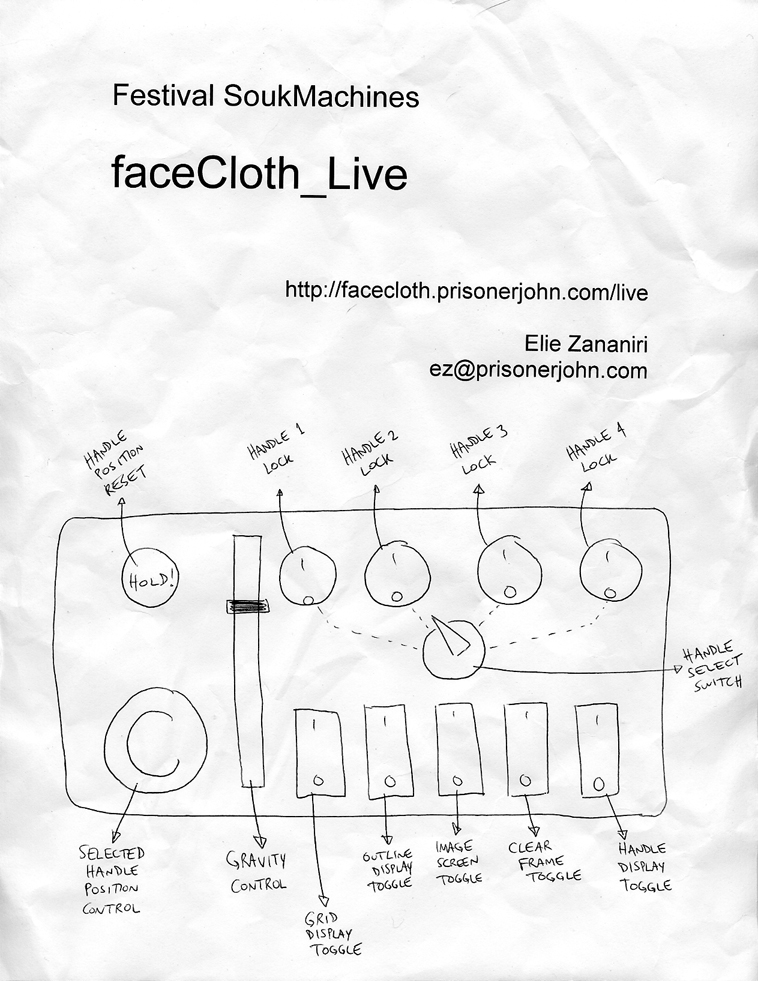 Festival SoukMachines
faceCloth_Live
http://facecloth.prisonerjohn.com/live
Elie Zananiri
ez@prisonerjohn.com
HANDLE
POSITION
RESET
HANDLE 1
LOCK
HANDLE 2
LOCK
HANDLE 3
LOCK
HANDLE 4
LOCK
HOLD!
HANDLE
SELECT
SWITCH
SELECTED
HANDLE
POSITION
CONTROL
GRAVITY
CONTROL
GRID
DISPLAY
TOGGLE
OUTLINE
DISPLAY
TOGGLE
IMAGE
SCREEN
TOGGLE
CLEAR
FRAME
TOGGLE
HANDLE
DISPLAY
TOGGLE